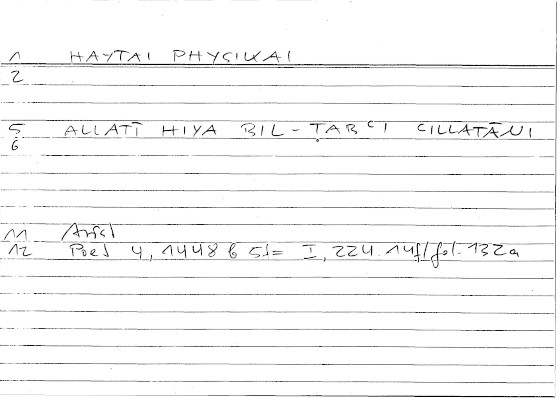 1 HAYTAI PHYSIKAI
2
5 ALLATĪ HIYA BIL-ṬABCI CILLATĀNI
6
11 Arist
12 Poet 4, 1448 b 5f= I, 224.14f/fol.132a